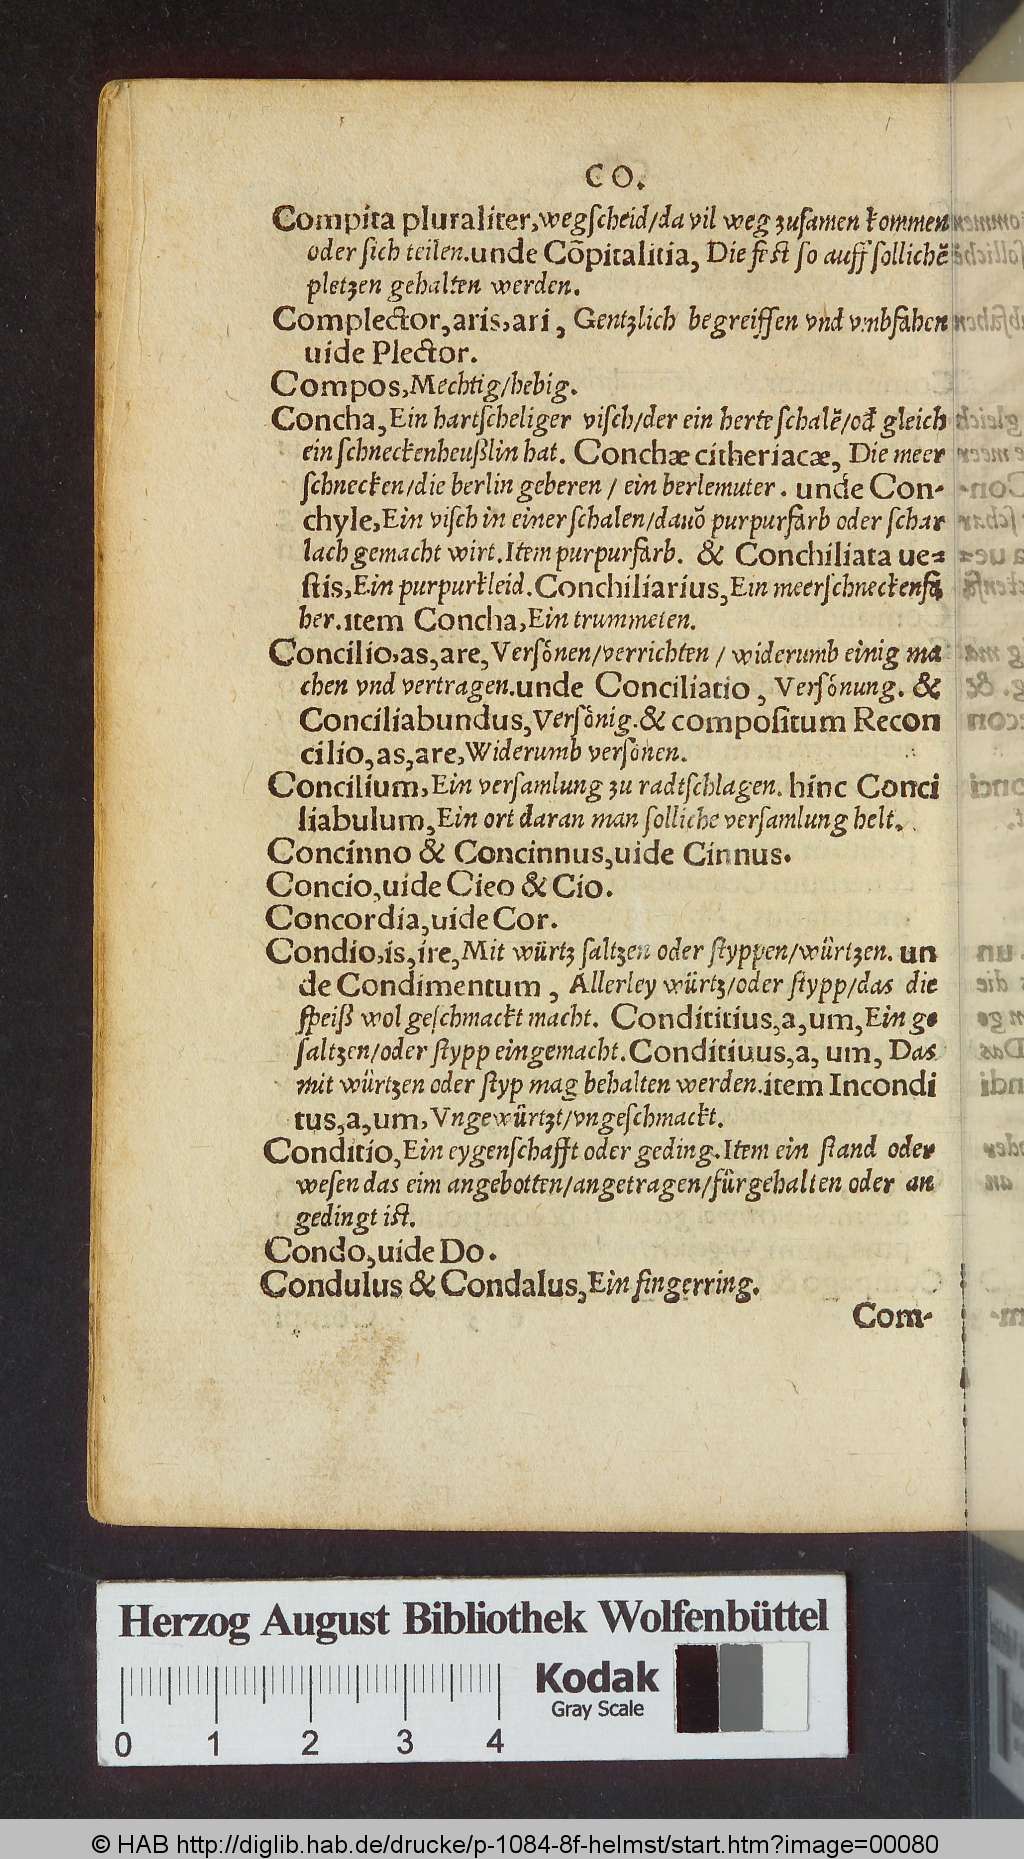 CO.
Compita pluraliter, wegſcheid/da vil weg zuſamen kommen
oder ſich teilen. unde Cõpitalitia, Die feſt ſo auff ſollichẽ
pletzen gehalten werden.
Complector, aris, ari, Gentzlich begreiffen vnd vmbfahen
uide Plector.
Compos, Mechtig/hebig.
Concha, Ein hartſcheliger viſch/der ein herte ſchalẽ/od̃ gleich
ein ſchneckenheußlin hat. Conchæ citheriacæ, Die meer
ſchnecken/die berlin geberen / ein berlemuter. unde Con-
chyle, Ein viſch in einer ſchalen/dauõ purpurfarb oder ſchar
lach gemacht wirt. Item purpurfarb. & Conchiliata ue-
ſtis, Ein purpurkleid. Conchiliarius, Ein meerſchneckenfã
her. item Concha, Ein trummeten.
Concilio, as, are, Verſönen/verrichten / widerumb einig ma
chen vnd vertragen. unde Conciliatio, Verſönung. &
Conciliabundus, Verſönig. & compoſitum Recon
cilio, as, are, Widerumb verſönen.
Concilium, Ein verſamlung zu radtſchlagen. hinc Conci
liabulum, Ein ort daran man ſolliche verſamlung helt.
Concinno & Concinnus, uide Cinnus.
Concio, uide Cieo & Cio.
Concordia, uide Cor.
Condio, is, ire, Mit würtz ſaltzen oder ſtyppen/würtzen. un
de Condimentum, Allerley würtz/oder ſtypp/das die
ſpeiß wol geſchmackt macht. Condititius, a, um, Ein ge
ſaltzen/oder ſtypp eingemacht. Conditiuus, a, um, Das
mit würtzen oder ſtyp mag behalten werden. item Incondi
tus, a, um, Vngewürtzt/vngeſchmackt.
Conditio, Ein eygenſchafft oder geding. Item ein ſtand oder
weſen das eim angebotten/angetragen/fürgehalten oder an
gedingt iſt.
Condo, uide Do.
Condulus & Condalus, Ein fingerring.
Com-
Herzog August Bibliothek Wolfenbüttel
Kodak
Gray Scale
0 1 2 3 4
© HAB http://diglib.hab.de/drucke/p-1084-8f-helmst/start.htm?image=00080